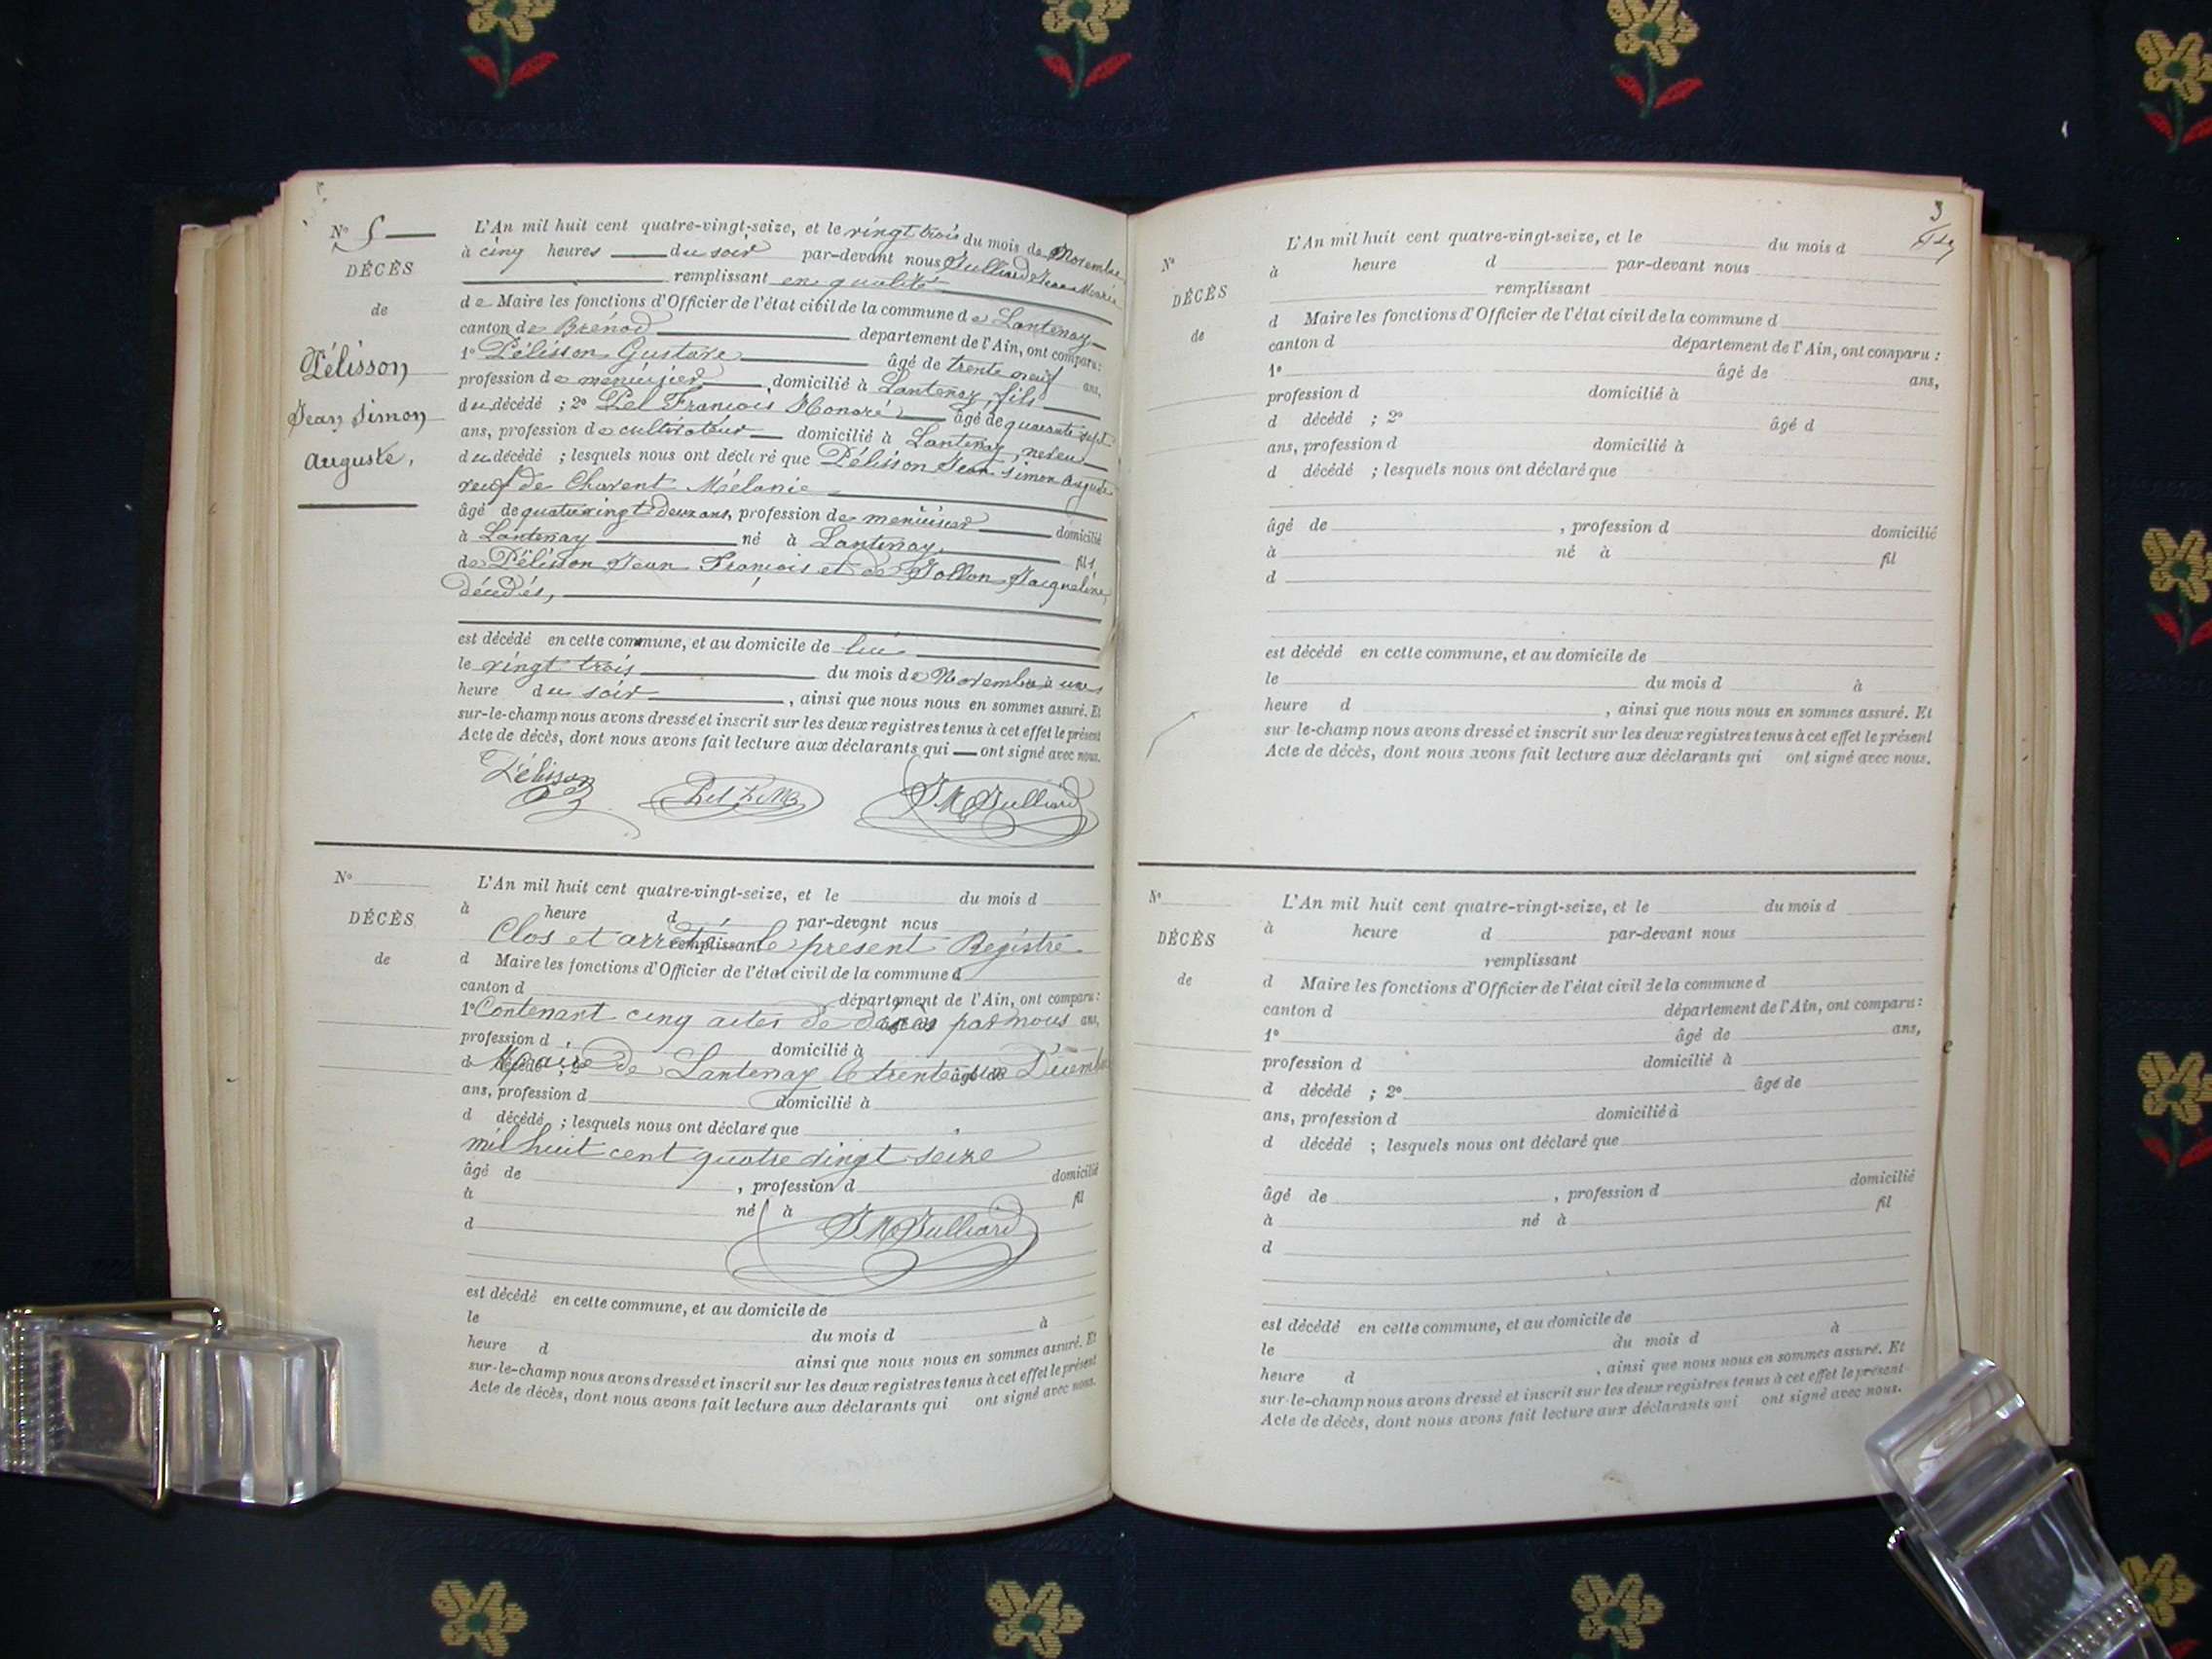 N° 5
DÉCÈS
de
Pélisson
Jean Simon
Auguste,
L'An mil huit cent quatre-vingt-seize, et le vingt trois du mois de Novembre
à cinq heures du soir par-devant nous Julliard Jean Marie
remplissant en qualité
de Maire les fonctions d'Officier de l'état civil de la commune de Lantenay
canton de Brénod département de l'Ain, ont comparu:
1° Pélisson Gustave âgé de trente neuf ans,
profession de menuisier, domicilié à Lantenay, fils
du décédé ; 2° Pel François Honoré âgé de quarante sept
ans, profession de cultivateur domicilié à Lantenay, neveu
du décédé ; lesquels nous ont déclaré que Pélisson Jean Simon Auguste
veuf de Charent Mélanie
âgé de quatrevingt deux ans, profession de menuisier domicilié
à Lantenay né à Lantenay, fils
de Pélisson Jean François et de Jollon Jacqueline,
décédés,
est décédé en cette commune, et au domicile de lui
le vingt trois du mois de Novembre à une
heure du soir, ainsi que nous nous en sommes assuré. Et
sur-le-champ nous avons dressé et inscrit sur les deux registres tenus à cet effet le présent
Acte de décès, dont nous avons fait lecture aux déclarants qui ont signé avec nous.
Pélisson Pel J M Julliard
N°
DÉCÈS
de
L'An mil huit cent quatre-vingt-seize, et le du mois d
à heure d par-devant nous
Clos et arrêté le présent Registre
remplissant
d Maire les fonctions d'Officier de l'état civil de la commune d
canton d département de l'Ain, ont comparu:
1° Contenant cinq actes de décès par nous ans,
profession d domicilié à
d décédé ; 2° âgé de
Maire de Lantenay le trente un Décembre
ans, profession d domicilié à
d décédé ; lesquels nous ont déclaré que
mil huit cent quatre vingt seize
âgé de , profession d domicilié
à né à fil
d
J M Julliard
est décédé en cette commune, et au domicile de
le du mois d à
heure d ainsi que nous nous en sommes assuré. Et
sur-le-champ nous avons dressé et inscrit sur les deux registres tenus à cet effet le présent
Acte de décès, dont nous avons fait lecture aux déclarants qui ont signé avec nous.
3
N°
DÉCÈS
de
L'An mil huit cent quatre-vingt-seize, et le du mois d
à heure d par-devant nous
remplissant
d Maire les fonctions d'Officier de l'état civil de la commune d
canton d département de l'Ain, ont comparu :
1° âgé de ans,
profession d domicilié à
d décédé ; 2° âgé d
ans, profession d domicilié à
d décédé ; lesquels nous ont déclaré que
âgé de , profession d domicilié
à né à fil
d
est décédé en cette commune, et au domicile de
le du mois d à
heure d , ainsi que nous nous en sommes assuré. Et
sur-le-champ nous avons dressé et inscrit sur les deux registres tenus à cet effet le présent
Acte de décès, dont nous avons fait lecture aux déclarants qui ont signé avec nous.
N°
DÉCÈS
de
L'An mil huit cent quatre-vingt-seize, et le du mois d
à heure d par-devant nous
remplissant
d Maire les fonctions d'Officier de l'état civil de la commune d
canton d département de l'Ain, ont comparu:
1° âgé de ans,
profession d domicilié à
d décédé ; 2° âgé de
ans, profession d domicilié à
d décédé ; lesquels nous ont déclaré que
âgé de , profession d domicilié
à né à fil
d
est décédé en cette commune, et au domicile de
le du mois d à
heure d , ainsi que nous nous en sommes assuré. Et
sur-le-champ nous avons dressé et inscrit sur les deux registres tenus à cet effet le présent
Acte de décès, dont nous avons fait lecture aux déclarants qui ont signé avec nous.